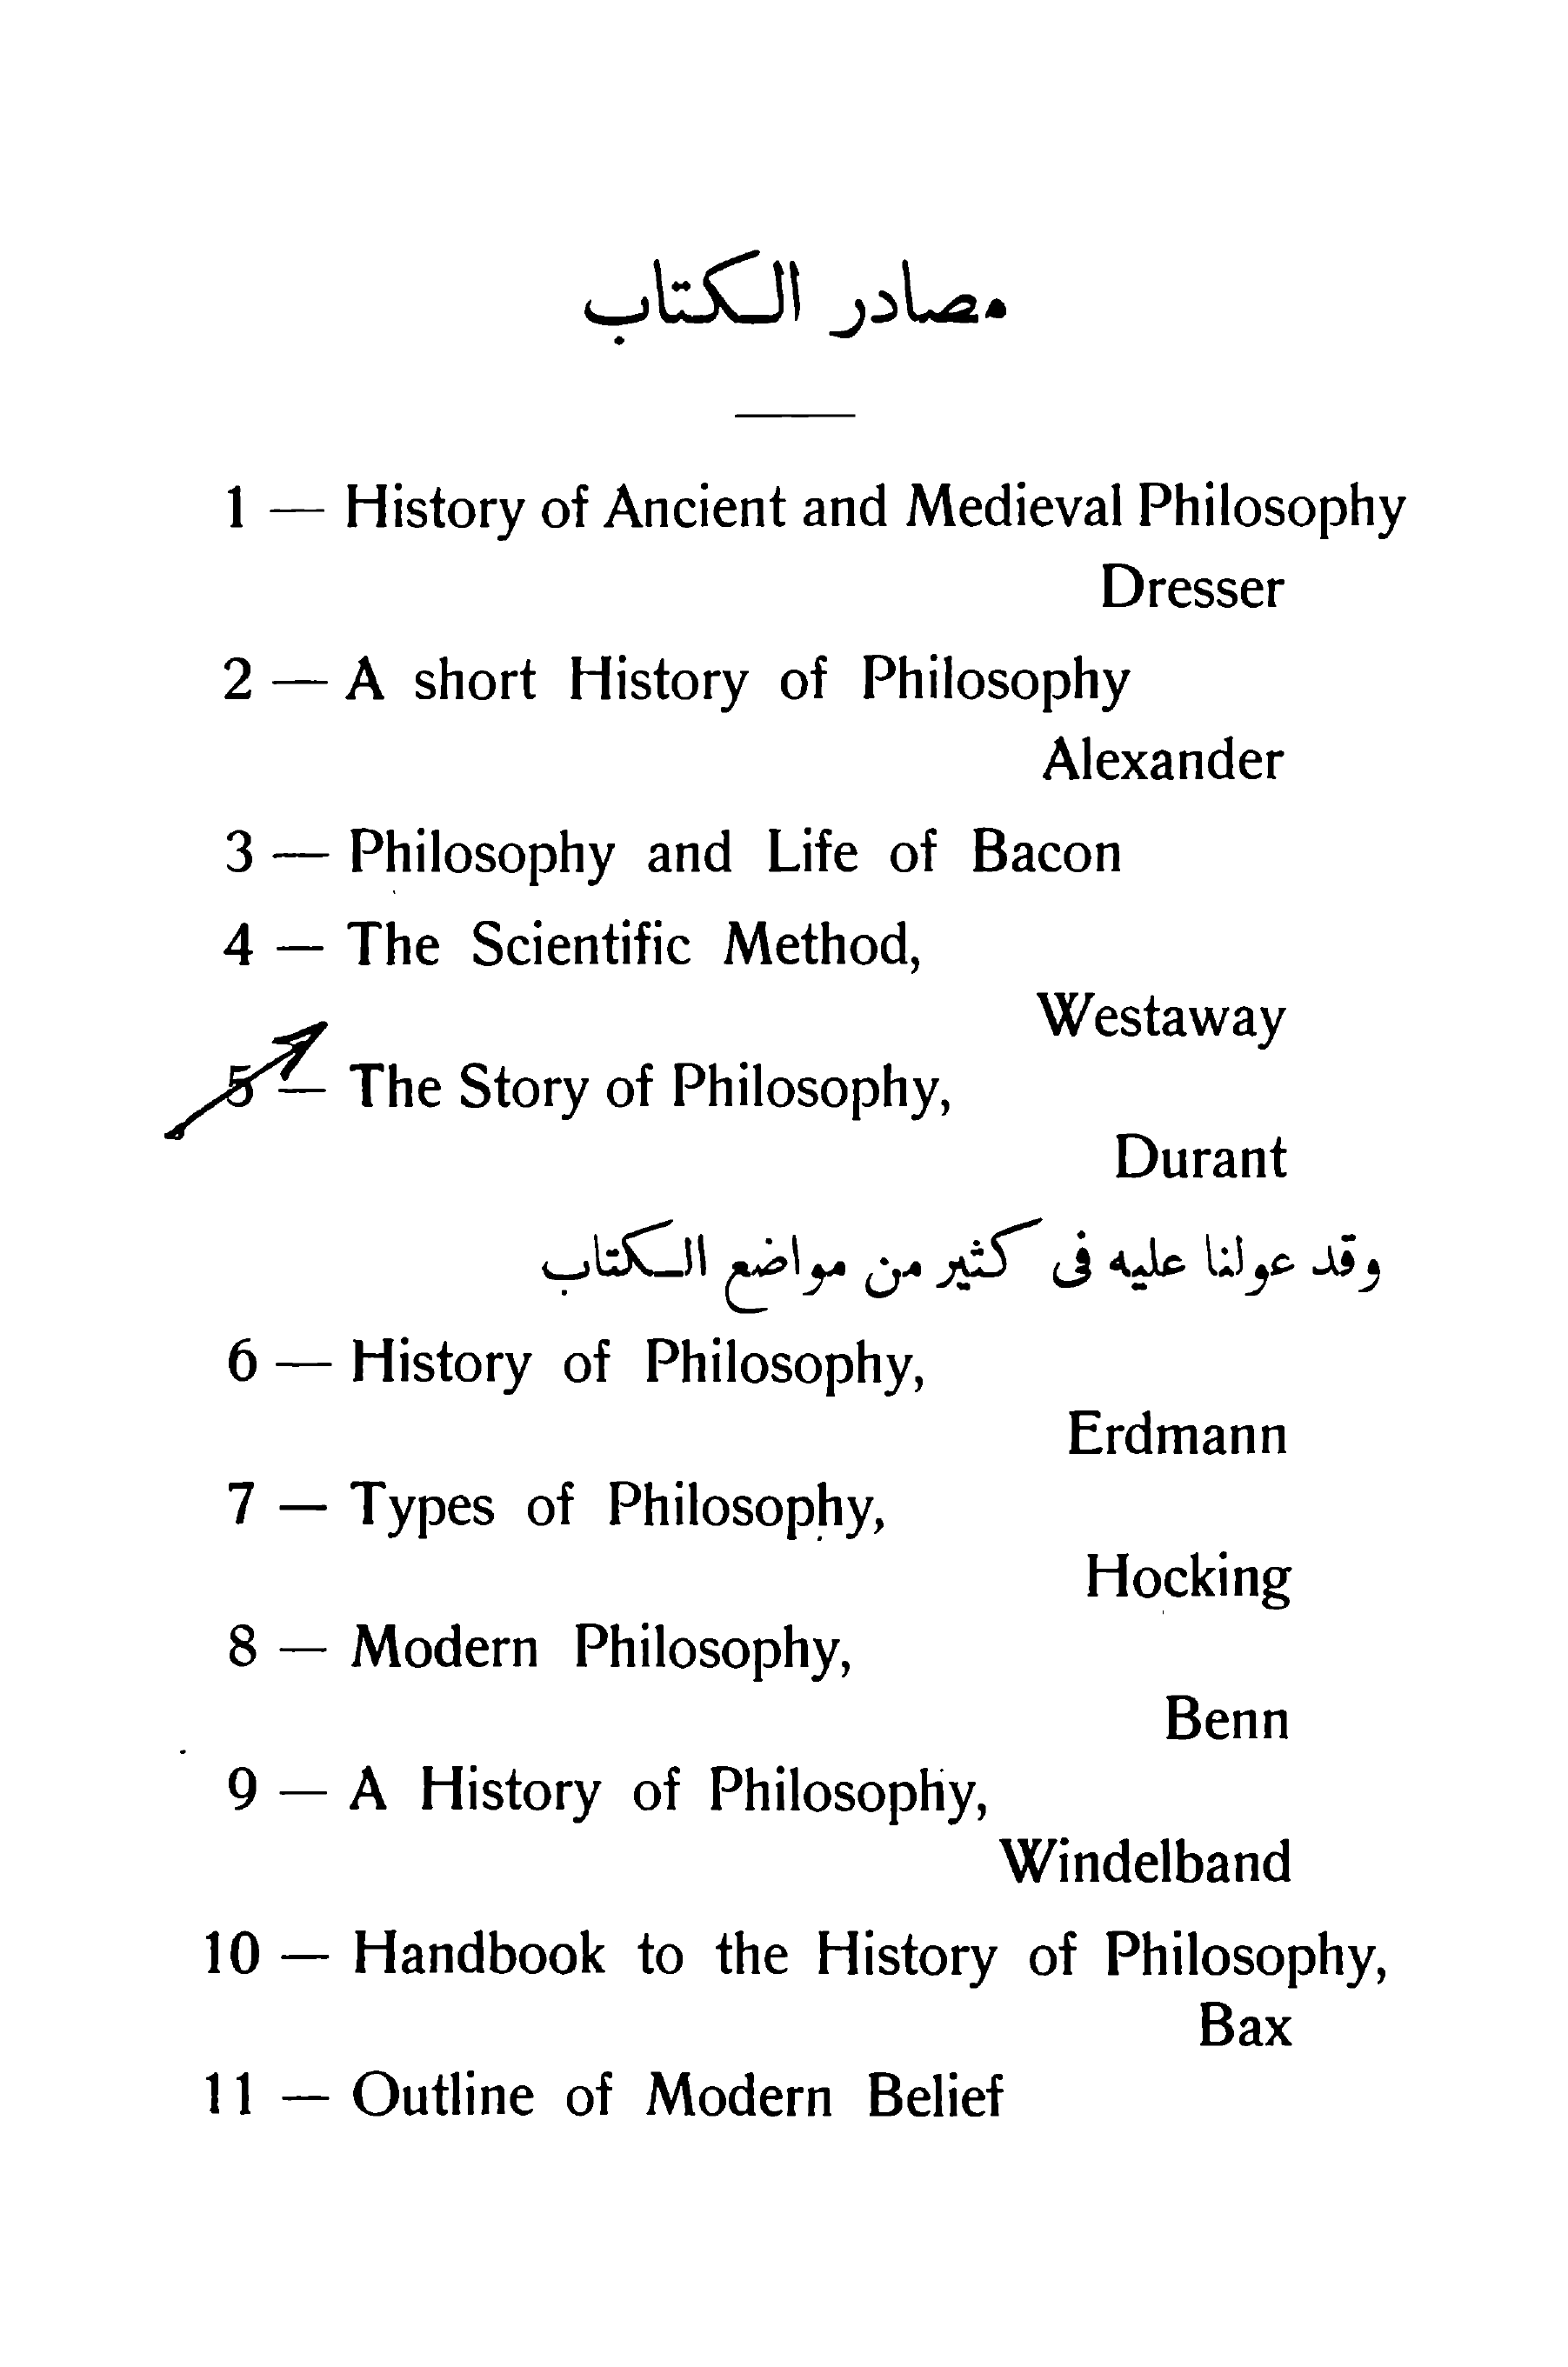 مصادر الكتاب
1 — History of Ancient and Medieval Philosophy
Dresser
2 — A short History of Philosophy
Alexander
3 — Philosophy and Life of Bacon
4 — The Scientific Method,
Westaway
5 — The Story of Philosophy,
Durant
وقد عولنا عليه فى كثير من مواضع الكتاب
6 — History of Philosophy,
Erdmann
7 — Types of Philosophy,
Hocking
8 — Modern Philosophy,
Benn
9 — A History of Philosophy,
Windelband
10 — Handbook to the History of Philosophy,
Bax
11 — Outline of Modern Belief